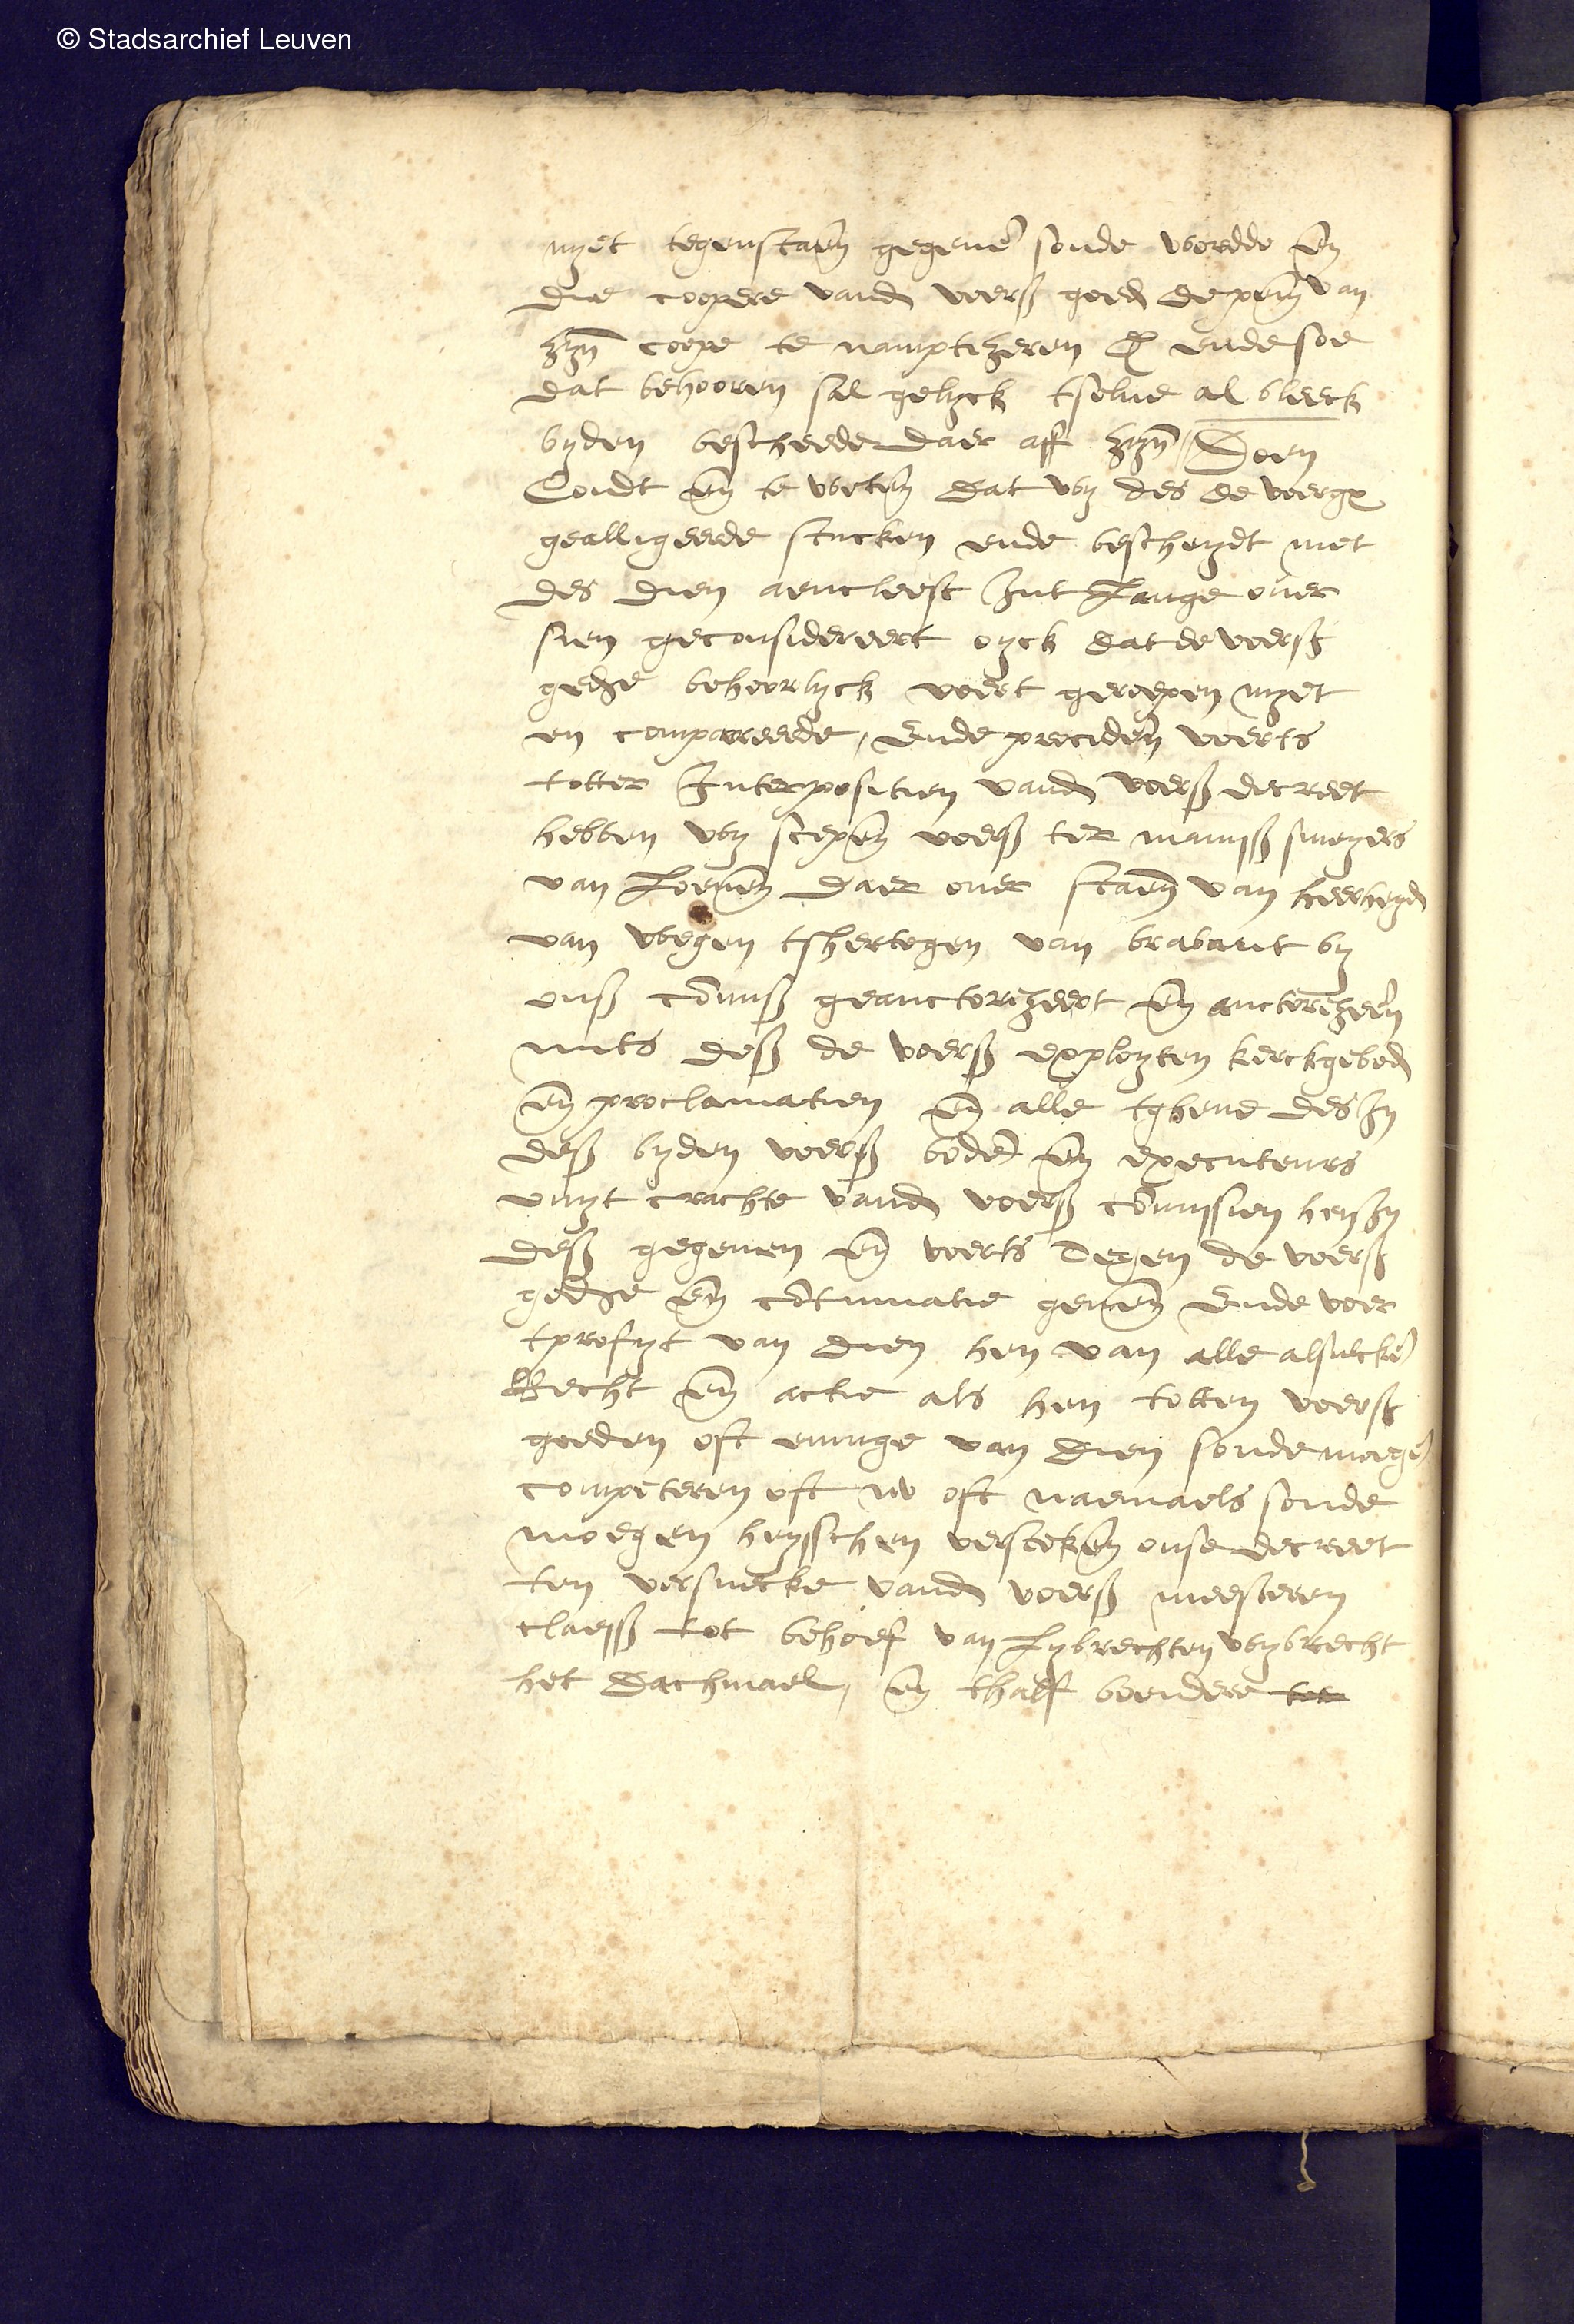 © Stadsarchief Leuven
nyet tegenstaen gegeuen soude wordde en
die coopere vanden voers goeden de pen van
zyn coope te namptizeren ende soe
dat behooren sal gelyck tselue al bleeck
byden bescheede daer aff zyn Doen
Condt en te weten dat wy des de voerg
gealligeerde stucken ende bescheydt met
des dien aencleeft Int Lange ouer
sien geconsidereert oyck dat de voers
ged behoorlyck voert geroepen nyet
en compareerde, Ende preciden voerts
totter Interpositien vanden voers decreet
hebben wy scepen voers ter manissen smeyers
van Loeuen daer ouer staen van
van wegen tshertogen van brabant by
onss geauctorizeert en auctorizeren
mits dess de voers exployten kerckgeboden
en proclamatien en alle tghene des In
dess byden voers bode en executeurs
vuyt crachte vanden voers commissien hen In
dess gegeuen en voerts tegen de voers
ged en contumatie geuen Ende voer
tprofyt van dien hen van alle alsulcken
Recht en actie als hen totten voers
goeden oft eenige van dien soude moegen
competeren oft nv oft naemaels soude
moegen heysschen versteken onse decreet
ten versuecke vanden voers meesteren
claess tot behoef van Lybrechten Wybrecht
het dachmael, en thalf boendere tot